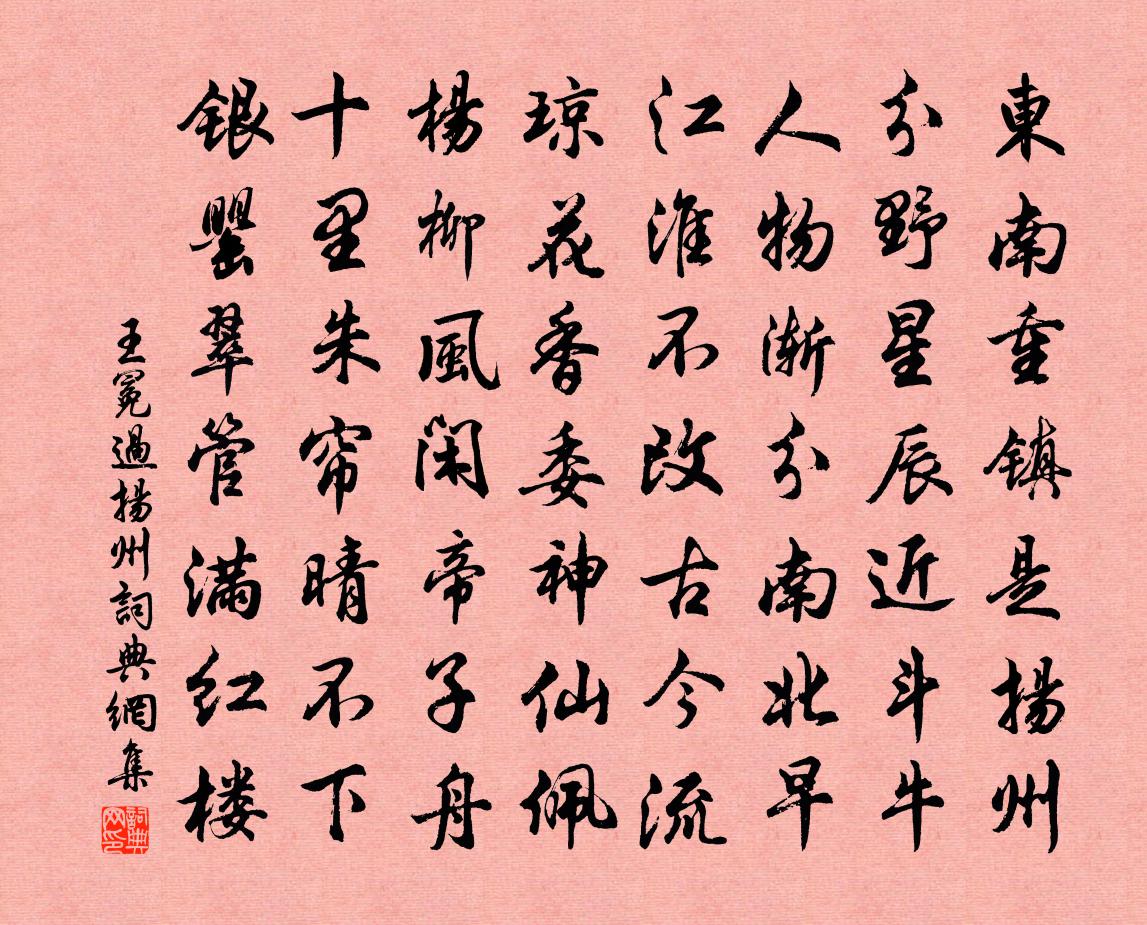 東南重鎮是揚州
分野星辰近斗牛
人物漸分南北早
江淮不改古今流
琼花香委神仙佩
楊柳風閑帝子舟
十里朱帘晴不下
銀罌翠管滿红楼
王冕過揚州詞典網集
詞典网印